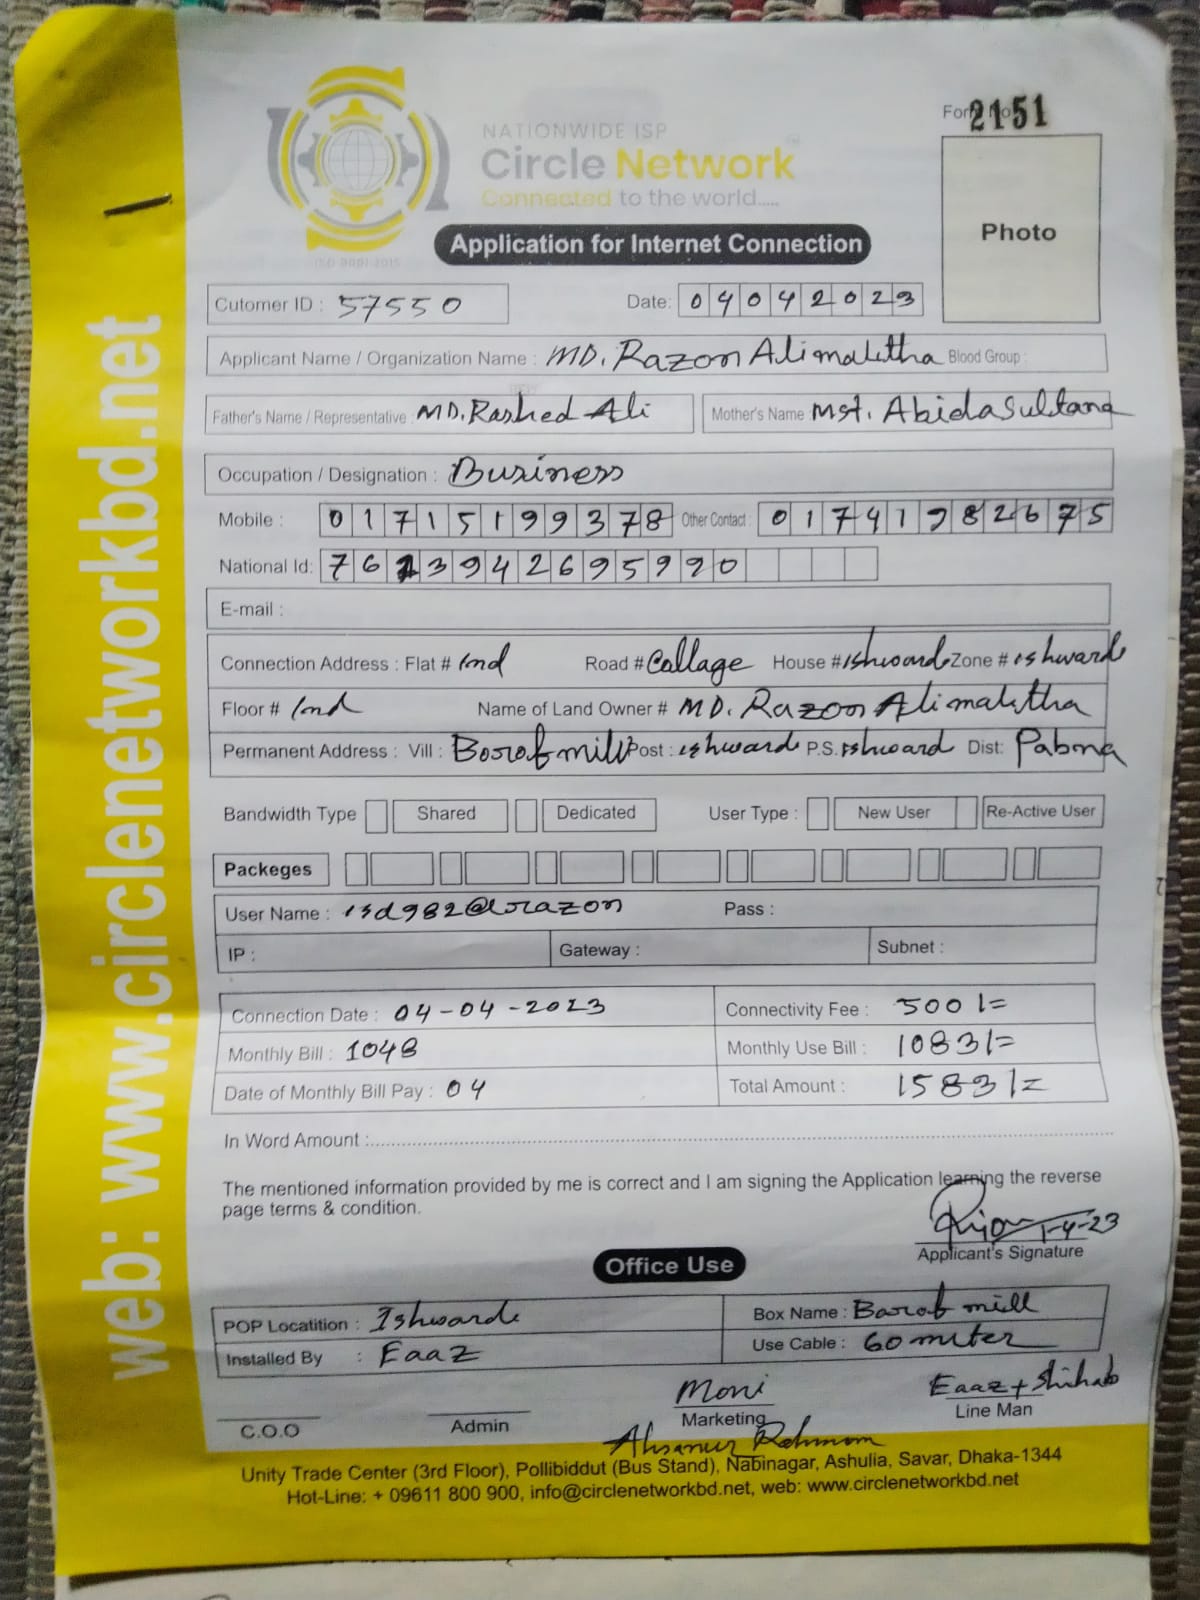 Form No 2151
NATIONWIDE ISP
Circle Network
Connected to the world.....
ISO 9001:2015
Application for Internet Connection
Photo
Cutomer ID : 57550 Date: 04042023
Applicant Name / Organization Name : MD. Razon Alimalitha Blood Group :
Father's Name / Representative : MD. Rashed Ali Mother's Name : Mst. Abida Sultana
Occupation / Designation : Business
Mobile : 01715199378 Other Contact : 01741982675
National Id: 7613942695990
E-mail :
Connection Address : Flat # 1nd Road # Collage House # ishwardi Zone # ishwardi
Floor # 1nd Name of Land Owner # MD. Razon Alimalitha
Permanent Address : Vill : Borof mill Post : ishwardi P.S. ishwardi Dist: Pabna
Bandwidth Type Shared Dedicated User Type : New User Re-Active User
Packeges
User Name : isd982@razon Pass :
IP : Gateway : Subnet :
Connection Date : 04-04-2023 Connectivity Fee : 500/=
Monthly Bill : 1048 Monthly Use Bill : 1083/=
Date of Monthly Bill Pay : 04 Total Amount : 1583/=
In Word Amount :
The mentioned information provided by me is correct and I am signing the Application learning the reverse
page terms & condition.
1-4-23
Applicant's Signature
Office Use
POP Locatition : Ishwardi Box Name : Barof mill
Installed By : Eaaz Use Cable : 60 miter
Moni Eaaz + Shihab
C.O.O Admin Marketing Line Man
Ahsanur Rahman
Unity Trade Center (3rd Floor), Pollibiddut (Bus Stand), Nabinagar, Ashulia, Savar, Dhaka-1344
Hot-Line: + 09611 800 900, info@circlenetworkbd.net, web: www.circlenetworkbd.net
web: www.circlenetworkbd.net